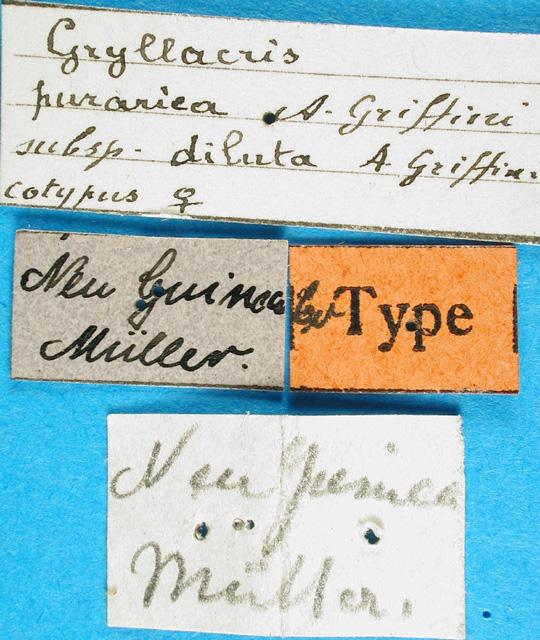 Gryllacris
purarica A. Griffini
subsp. diluta A. Griffini
cotypus ♀
Neu Guinea
Müller.
Co Type
Neu Guinea
Müller.